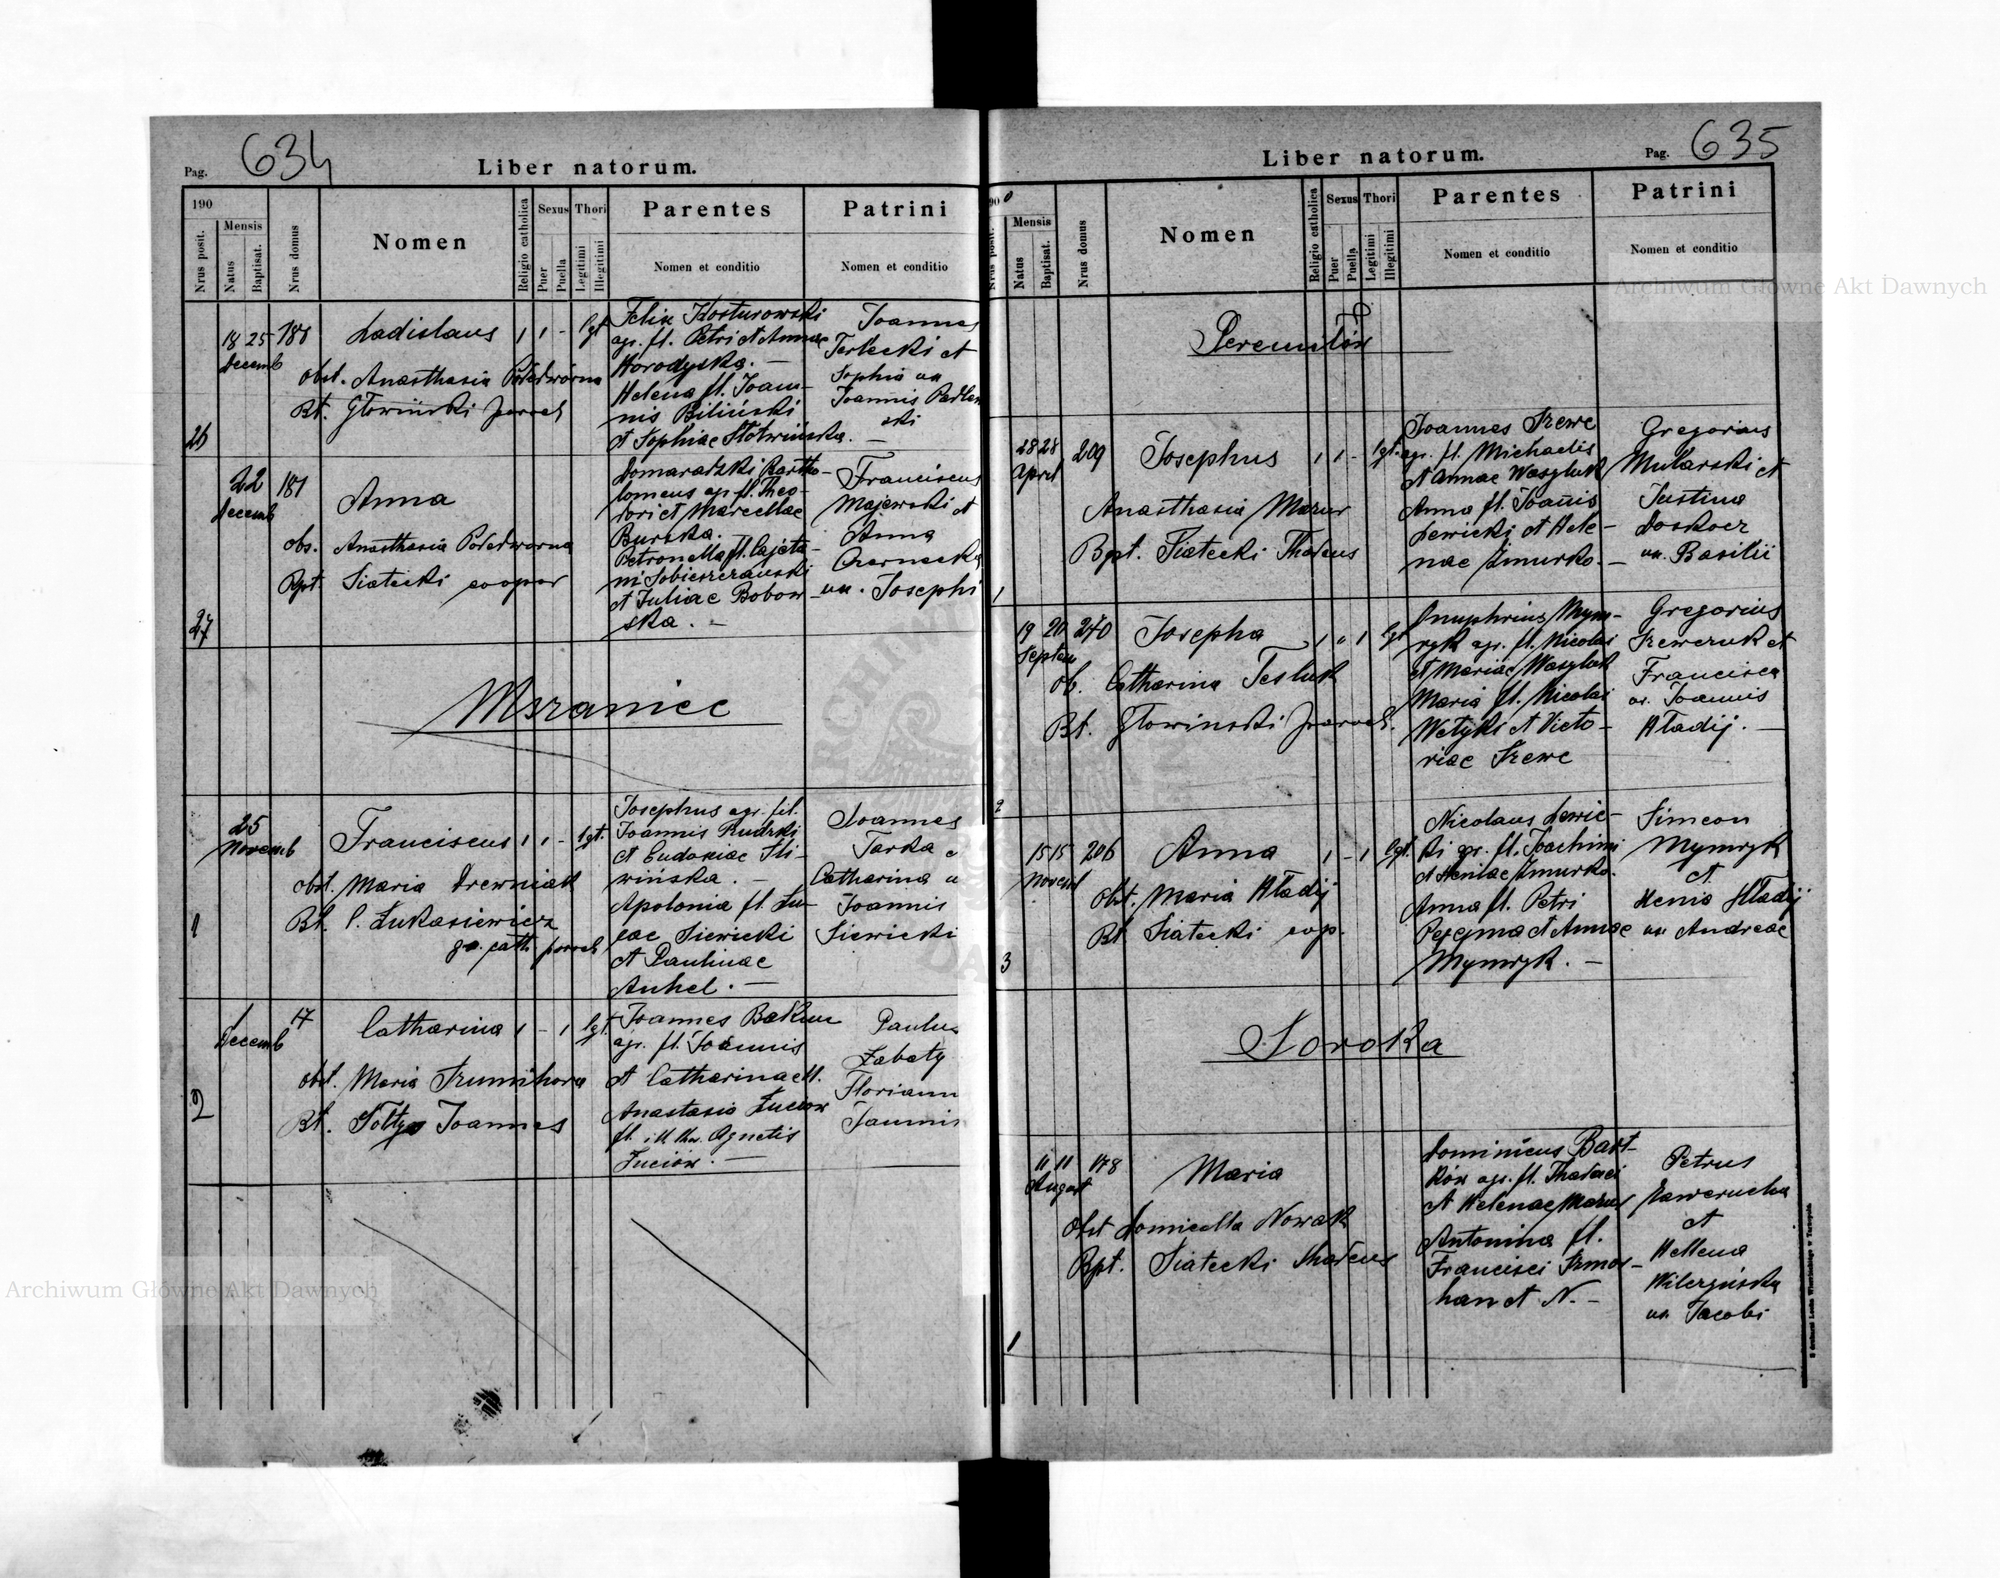 Pag. 634
Liber natorum.
190
Nrus posit.
Mensis
Natus
Baptisat.
Nrus domus
Nomen
Religio catholica
Sexus
Puer
Puella
Thori
Legitimi
Illegitimi
Parentes
Nomen et conditio
Patrini
Nomen et conditio
26
18 25 188
Decemb
Ladislaus 1 1 - lgt
obst. Anasthasia Podedworna
Bt. Głowiński paroch
Felix Kosturowski
agr. fl. Petri et Annae
Horodyska. —
Helena fl. Joan-
nis Biliński
et Sophiae Słotwińska. —
Joannes
Terlecki et
Sophia ux
Joannis Padlew
ski
27
22 181
Decemb
Anna
obs. Anasthasia Podedworna
Bpt. Siatecki coopor
Domaradzki Bartho-
lomeus agr fl. Theo-
dori et Marcellae
Burska. —
Petronella fl. Cajeta-
ni Sobieszczański
et Juliae Bobow
ska. —
Franciscus
Majewski et
Anna
Czarnecka
ux. Josephi
Mszaniec
1
25
Novemb
Franciscus 1 1 - lgt.
obst. Maria Drewniak
Bt. P. Łukasiewicz
gr. cath. paroch
Josephus agr. fil.
Joannis Rudzki
et Eudoxiae Śli-
wińska. —
Apolonia fl. Lu-
cae Siewicki
et Paulinae
Anhel. —
Joannes
Tarka
Catharina u
Joannis
Siewicki
2
17
Decemb
Catharina 1 - 1 lgt.
obst. Maria Trumihora
Bt. Sołtys Joannes
Joannes Bakun
agr. fl. Joannis
et Catharinae M.
Anastasia Łuciów
fl. illth. Agnetis
Łuciów. —
Paulus
Zabaty
Floriann
Joannis
Pag. 635
Liber natorum.
900
Nrus posit.
Mensis
Natus
Baptisat.
Nrus domus
Nomen
Religio catholica
Sexus
Puer
Puella
Thori
Legitimi
Illegitimi
Parentes
Nomen et conditio
Patrini
Nomen et conditio
Peremilów
1
28 28 209
April
Josephus 1 1 - lgt.
Anasthasia Mazur
Bpt. Siatecki Thadeus
Joannes Szewc
agr. fl. Michaelis
et Annae Wasyluk
Anna fl. Joanis
Lewicki et Hele-
nae Żmurko. —
Gregorius
Mularski et
Justina
Doskocz
ux. Basilii
2
19 20 240
Septem
Josepha 1 " 1 lgt
ob. Catharina Tesluk
Bt. Głowinski paroch.
Onuphrius Mym-
ryk agr. fl. Nicolai
et Mariae Wasyluk
Maria fl. Nicolai
Wetyki et Victo-
riae Szewc
Gregorius
Szewczuk et
Francisca
ux. Joannis
Hładij. —
3
15 15 206
Novemb
Anna 1 - 1 lgt.
Obst. Maria Hładij
Bt Siatecki cop.
Nicolaus Lewic-
ki gr. fl. Joachimi
et Heniae Żmurko.
Anna fl. Petri
et Annae
Mymryk. —
Simeon
Mymryk
et
Henia Hładij
ux Andreae
Soroka
1
11 11 178
August
Maria
Obst Domicella Nowak
Bpt. Siatecki Thadeus
Dominicus Bart-
ków agr. fl. Thadaei
et Helenae Mazur
Antonina fl.
Francisci Szmar-
han et N. —
Petrus
Zawerucha
et
Hellena
Wilczyńska
ux Jacobi
Archiwum Główne Akt Dawnych
Archiwum Główne Akt Dawnych